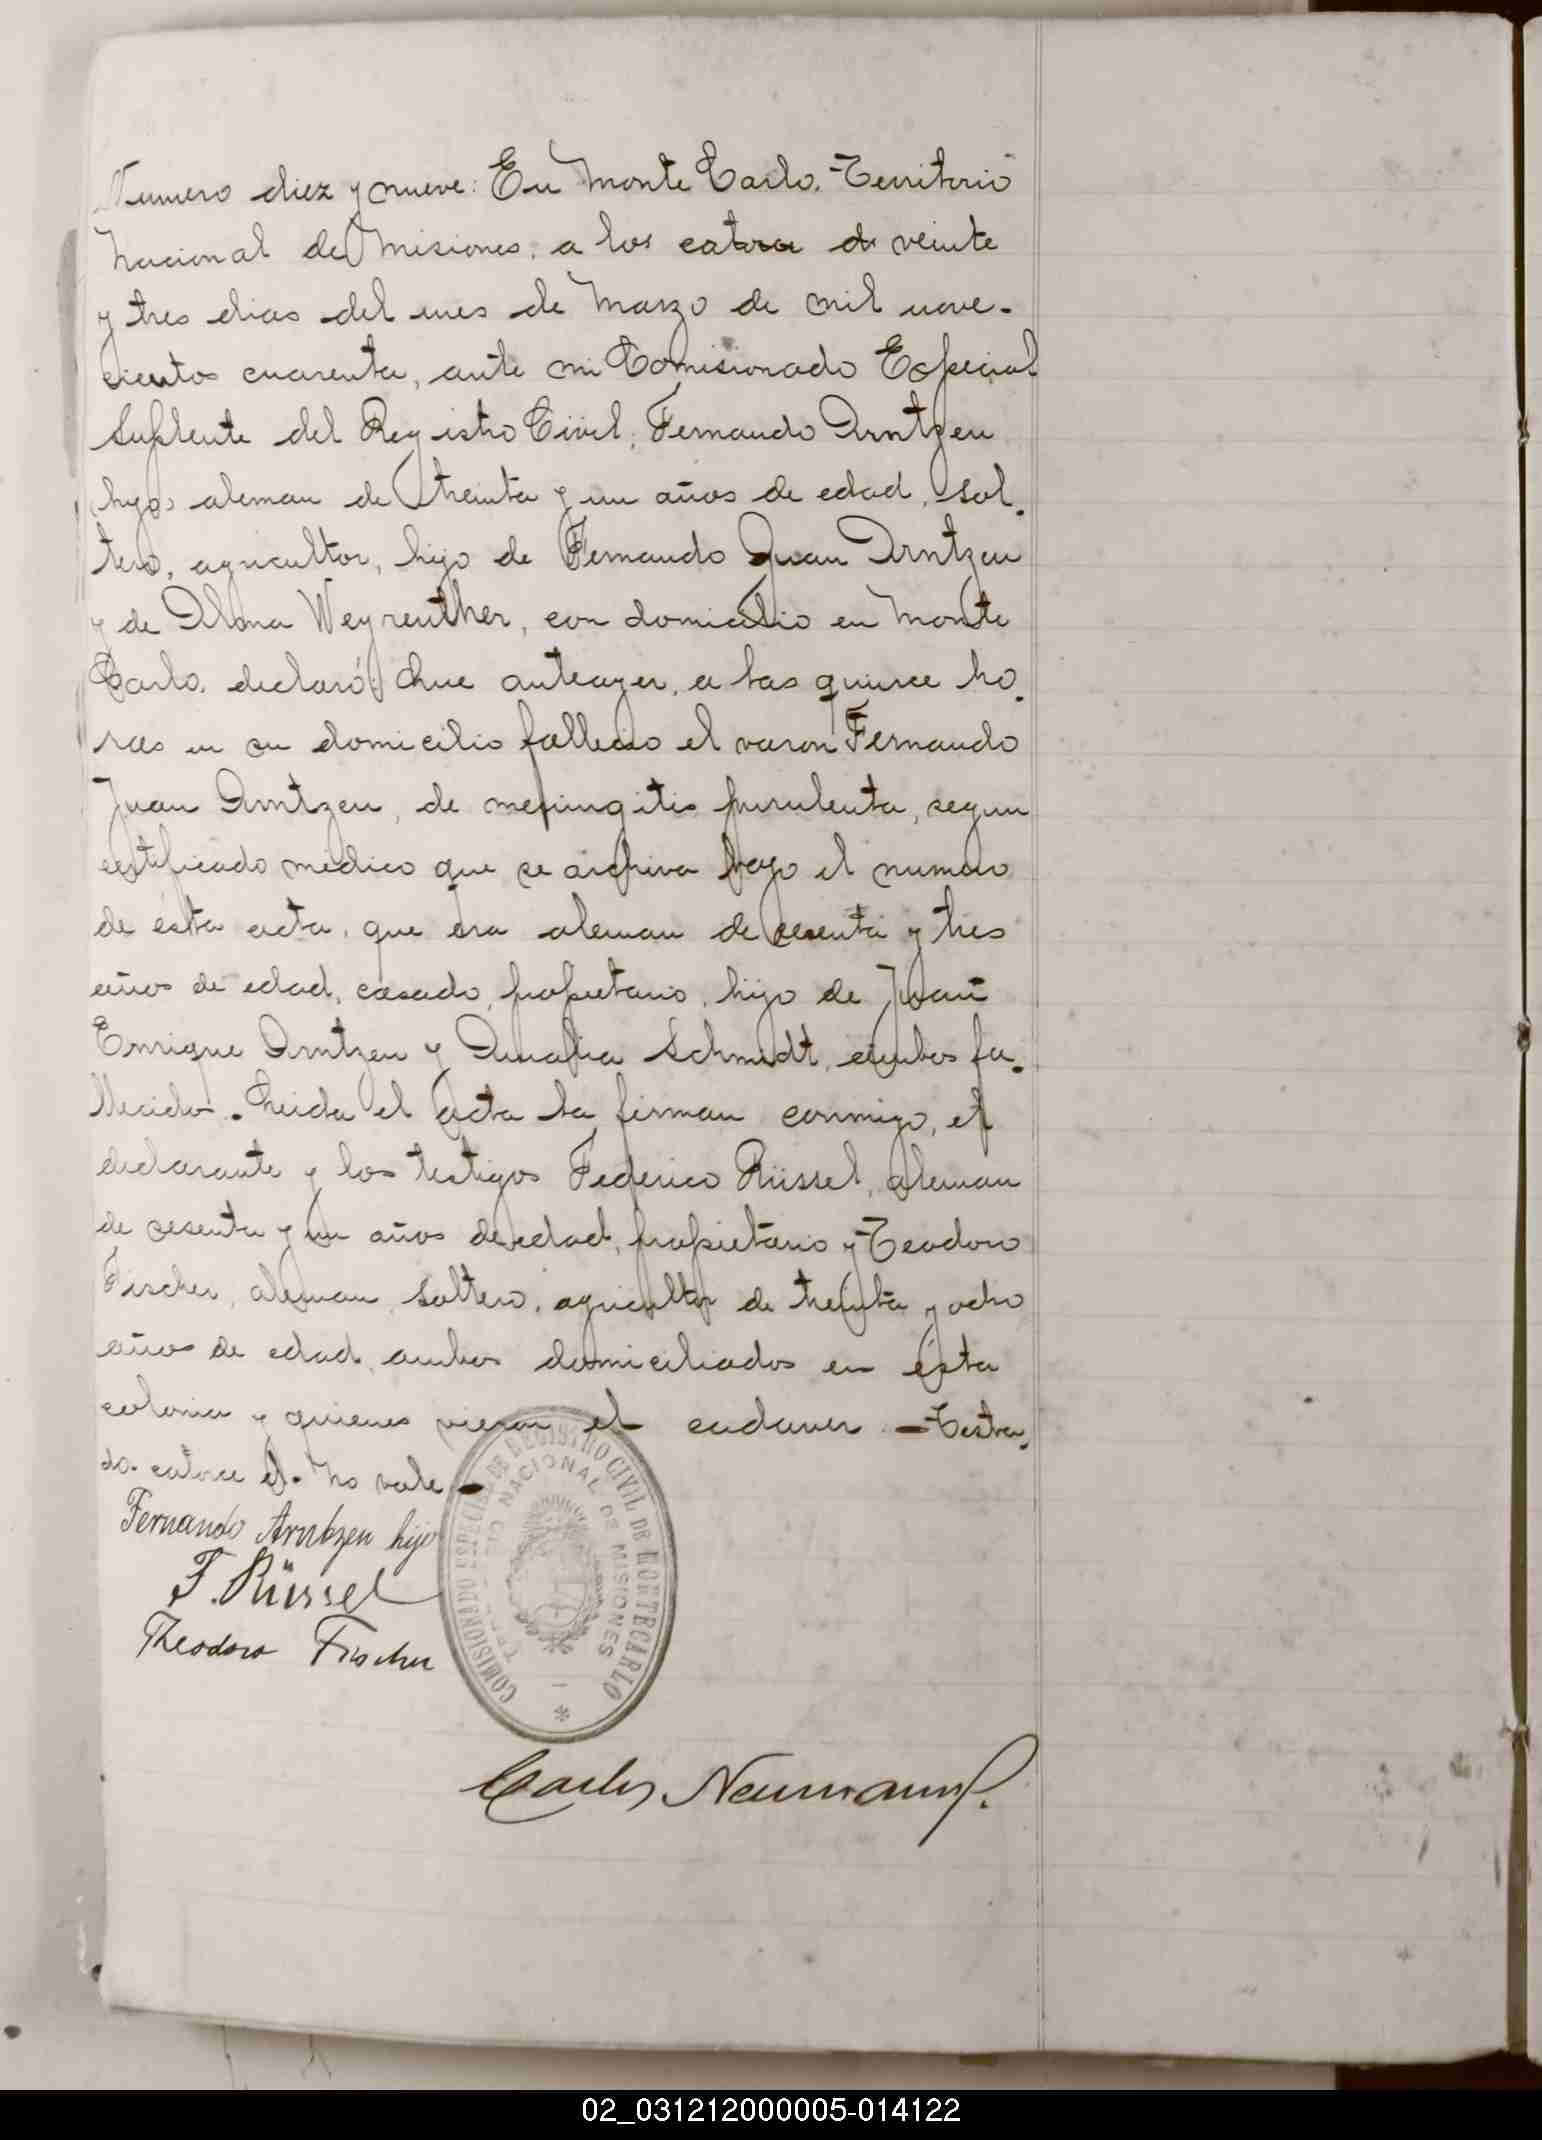 Numero diez y nueve: En Monte Carlo, Territorio
Nacional de Misiones, a los catorce de veinte
y tres dias del mes de Marzo de mil nove-
cientos cuarenta, ante mi Comisionado Especial
Suplente del Registro Civil, Fernando Arntzen
hijo, aleman de treinta y un años de edad, sol-
tero, agricultor, hijo de Fernando Juan Arntzen
y de Alma Weyreuther, con domicilio en Monte
Carlo, declaró: Que anteayer, a las quince ho-
ras en su domicilio fallecio el varon Fernando
Juan Arntzen, de meningitis purulenta, segun
certificado medico que se archiva bajo el numero
de ésta acta, que era aleman de sesenta y tres
años de edad, casado, propietario, hijo de Juan
Enrique Arntzen y Amalia Schmidt, ambos fa-
llecidos. Leida el acta la firman conmigo, el
declarante y los testigos Federico Rüssel, aleman
de sesenta y un años de edad, propietario y Teodoro
Fischer, aleman, soltero, agricultor de treinta y ocho
años de edad, ambos domiciliados en ésta
colonia y quienes vieron el cadaver. - Testa-
do. catorce d. No vale -
Fernando Arntzen hijo
F. Rüssel
Theodoro Fischer
COMISIONADO ESPECIAL DE REGISTRO CIVIL DE MONTECARLO
TERRITORIO NACIONAL DE MISIONES
Carlos Neumann.
02_031212000005-014122